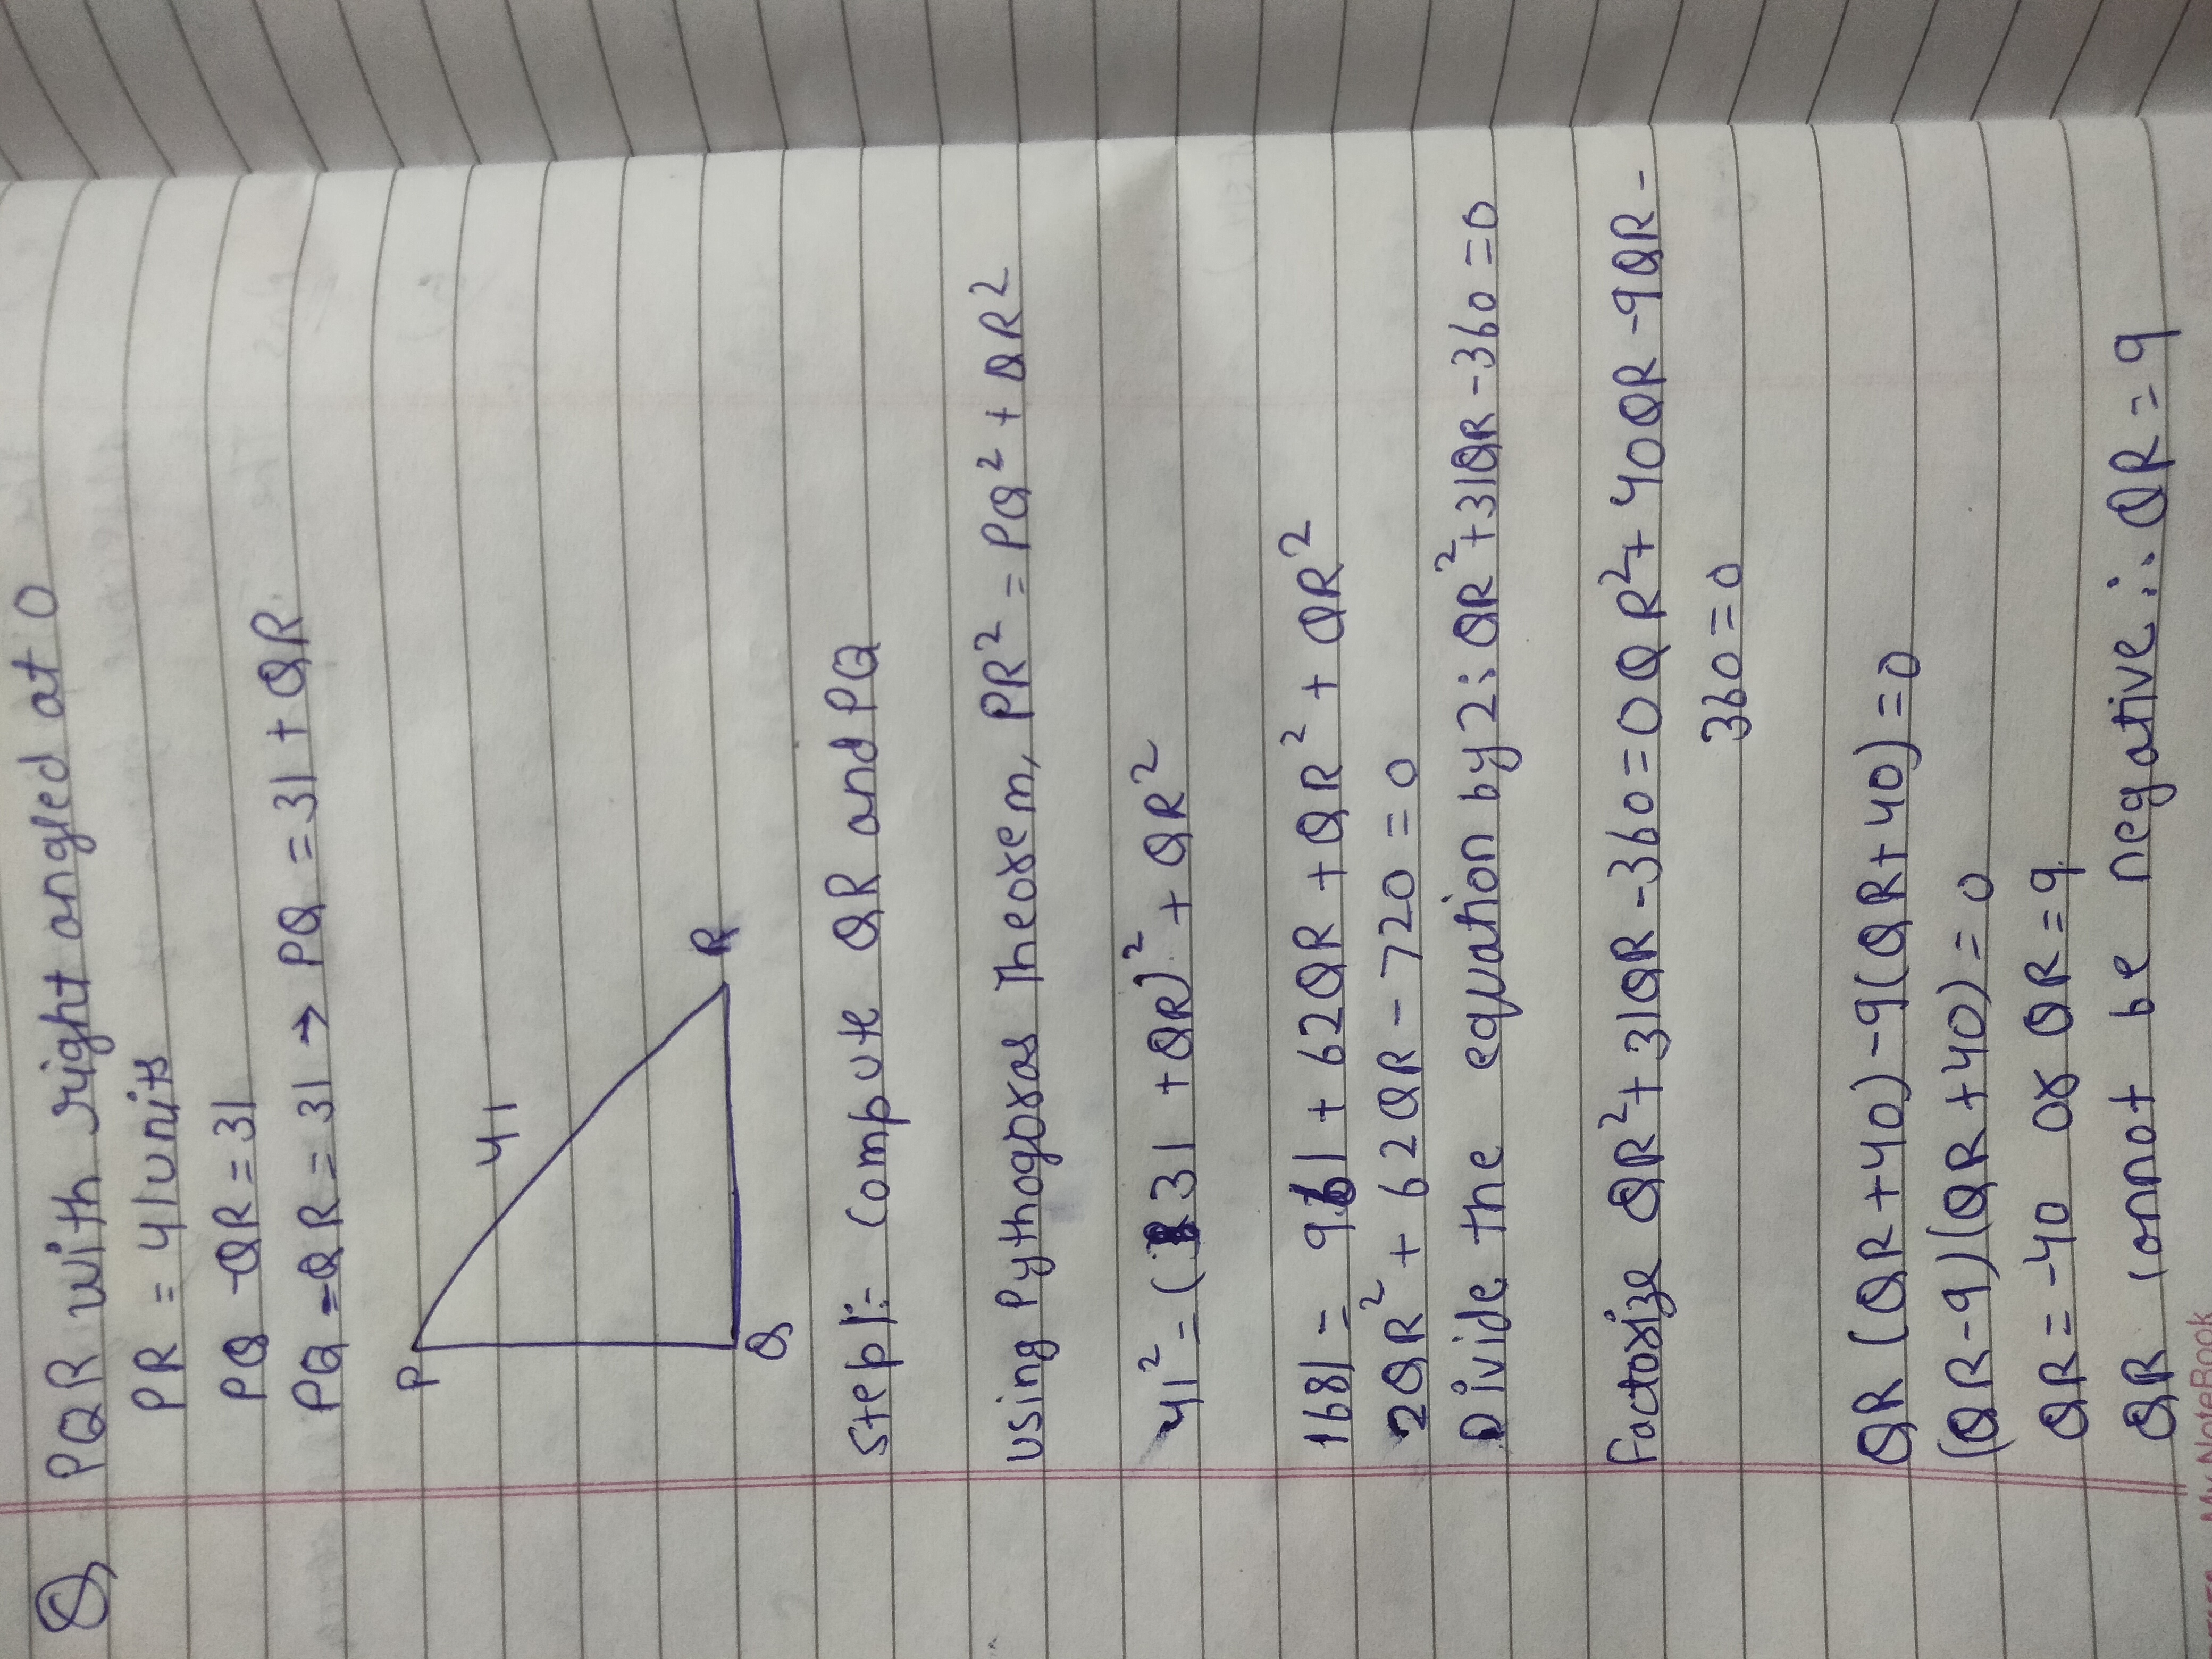 Q PQR with right angled at O
PR = 41 units
PQ - QR = 31
PQ - QR = 31 → PQ = 31 + QR
P
41
Q
R
Step 1:- Compute QR and PQ
using Pythogoras Theorem, PR² = PQ² + QR²
41² = (31 + QR)² + QR²
1681 = 961 + 62QR + QR² + QR²
2QR² + 62QR - 720 = 0
Divide the equation by 2: QR² + 31QR - 360 = 0
Factorize QR² + 31QR - 360 = 0 QR² + 40QR - 9QR -
360 = 0
QR (QR + 40) - 9(QR + 40) = 0
(QR - 9) (QR + 40) = 0
QR = -40 or QR = 9
QR cannot be negative ∴ QR = 9
My NoteBook